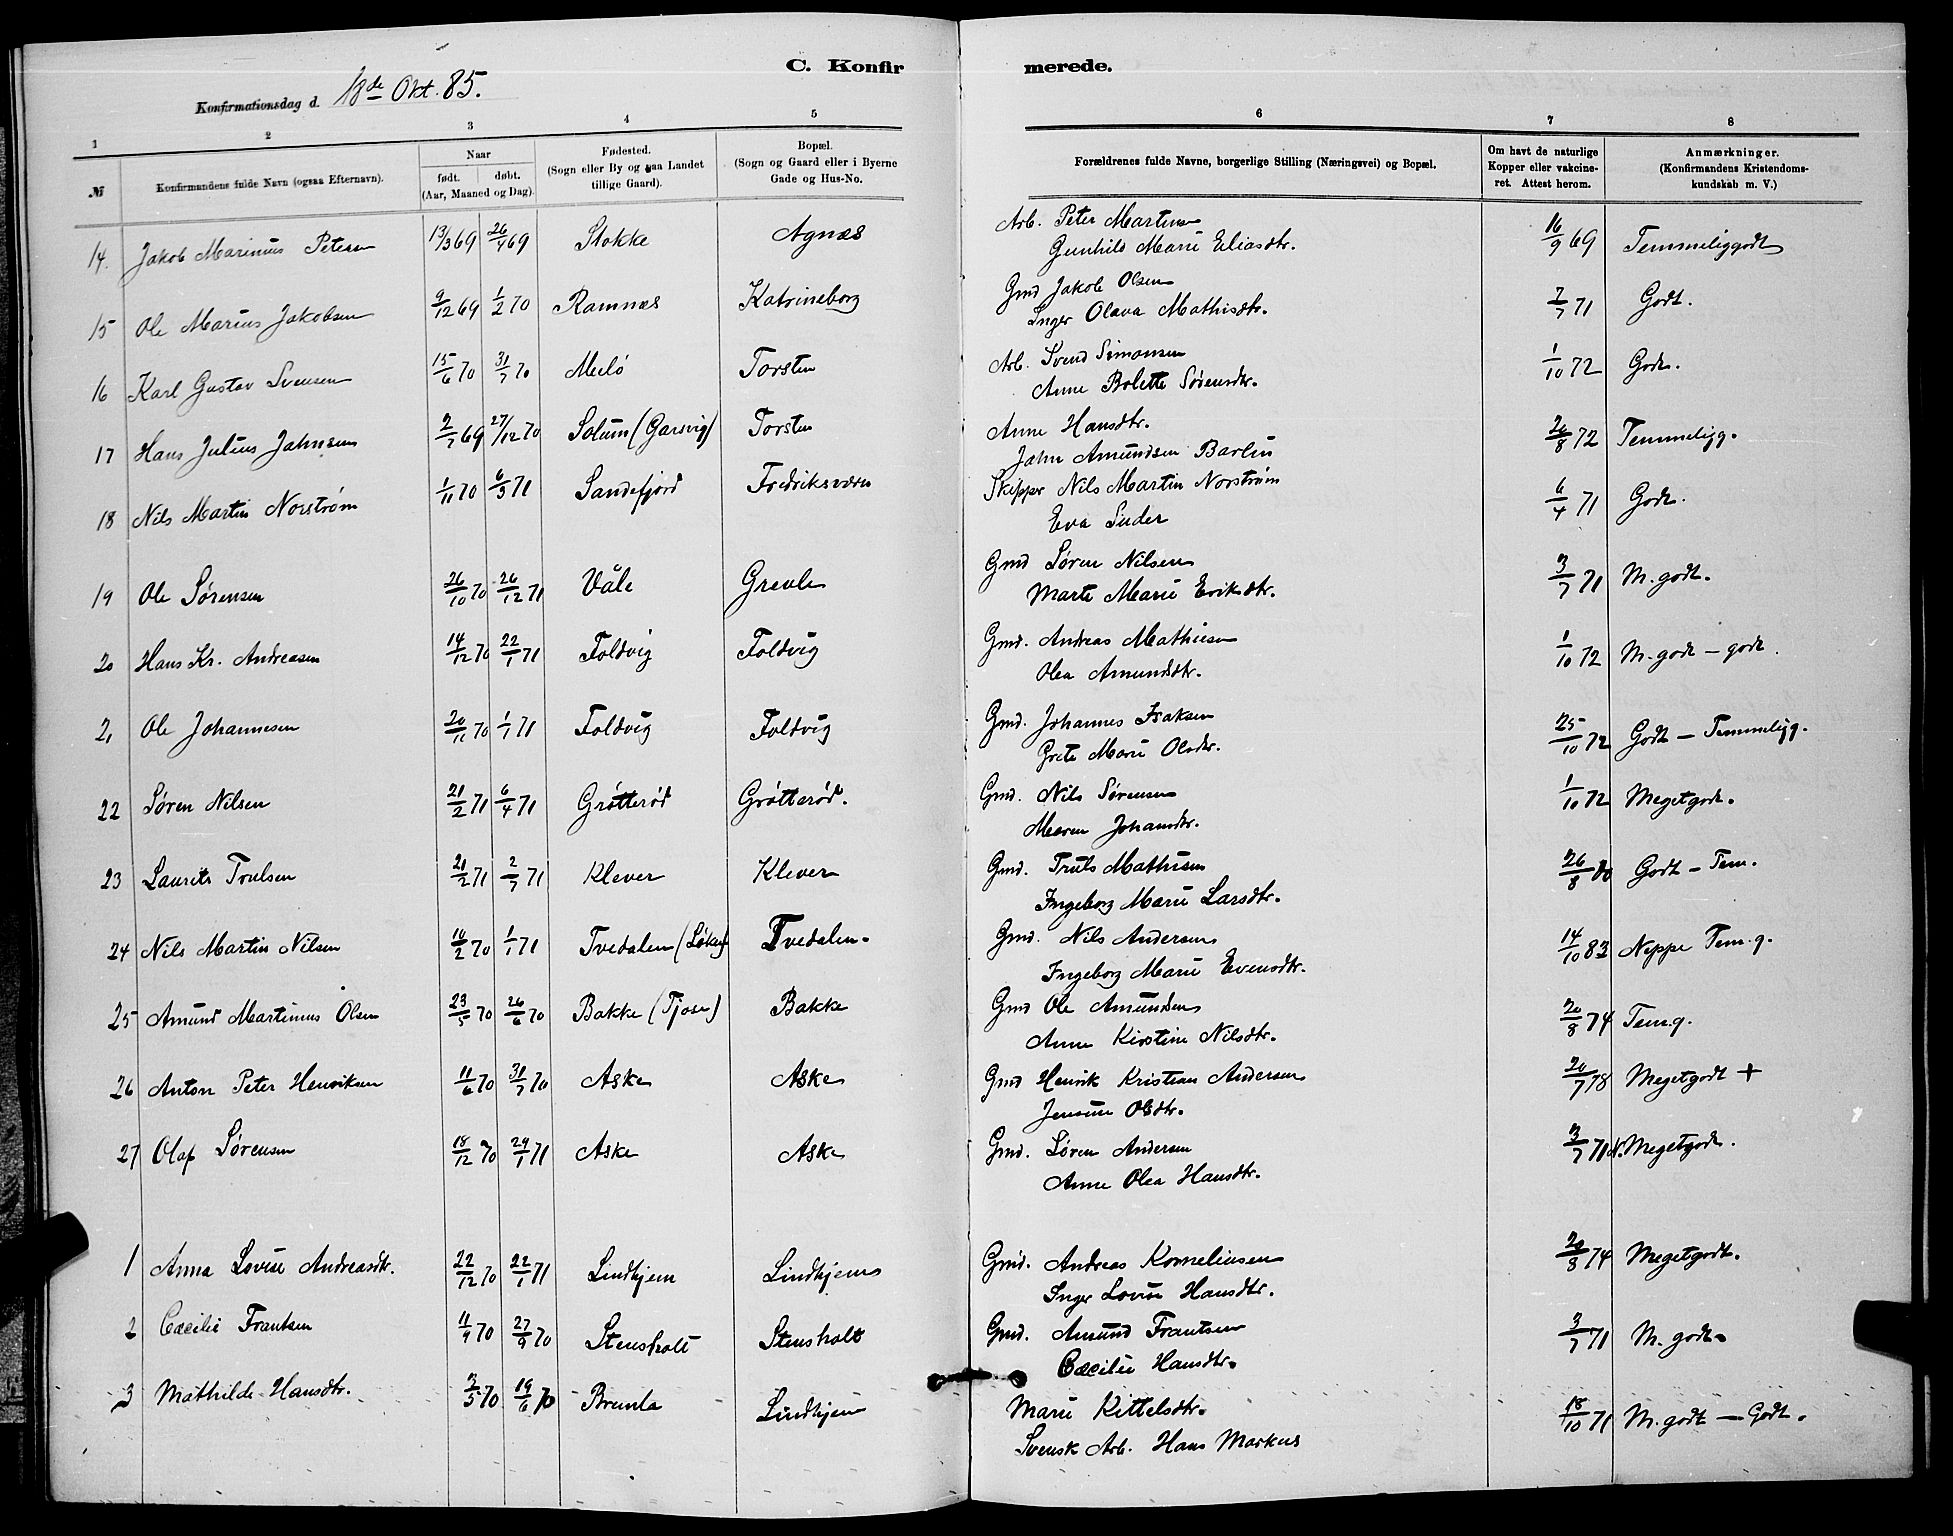 C. Konfirmerede.
Konfirmationsdag d. 18de Okt. 85.
1 2 3 4 5 6 7 8
№ Konfirmandens fulde Navn (ogsaa Efternavn). Naar født. døbt. (Aar, Maaned og Dag). Fødested. (Sogn eller By og paa Landet tillige Gaard). Bopæl. (Sogn og Gaard eller i Byerne Gade og Hus-No. Forældrenes fulde Navne, borgerlige Stilling (Næringsvei) og Bopæl. Om havt de naturlige Kopper eller vakcineret. Attest herom. Anmærkninger. (Konfirmandens Kristendomskundskab m. V.)
14. Jakob Marinius Petersen 13/3 69 26/4 69 Stokke Agnæs Arb. Peter Martinsen 16/9 69 Temmeliggodt
Gunhild Marie Eliasdtr.
15 Ole Marius Jakobsen 9/12 69 1/2 70 Ramnæs Katrineborg Gmd Jakob Olsen 7/7 71 Godt.
Inger Olava Mathisdtr.
16 Karl Gustav Svensen 15/6 70 31/7 70 Melö Torsten Arb. Svend Simonsen 1/10 72 Godt.
Anne Bolette Sørensdtr.
17 Hans Julius Jahnsen 2/7 69 27/12 70 Solum (Garsvig) Torsten Anne Hansdtr. 20/8 72 Temmeligg.
Jahn Amundsen Barlin
18 Nils Martin Norstrøm 1/11 70 6/3 71 Sandefjord Fredriksværn Skipper Nils Martin Norstrøm 6/4 71 Godt.
Eva
19 Ole Sørensen 26/10 70 26/12 71 Våle Grevle Gmd Søren Nilsen 3/7 71 M. godt.
Marte Marie Eriksdtr.
20 Hans Kr. Andreasen 14/12 70 22/1 71 Foldvig Foldvig Gmd. Andreas Mathiesen 1/10 72 M. godt – godt.
Olea Amundsdtr.
21 Ole Johannesen 20/11 70 1/1 71 Foldvig Foldvig Gmd. Johannes Isaksen 25/10 72 Godt – Temmeligg.
Grete Marie Olsdtr.
22 Søren Nilsen 21/2 71 6/4 71 Grøtterød Grøtterød. Gmd. Nils Sørensen 1/10 72 Megetgodt.
Maren Johansdtr.
23 Laurits Trulsen 21/2 71 2/7 71 Klever Klever Gmd. Truls Mathisen 26/8 80 Godt – Tem.
Ingeborg Marie Larsdtr.
24 Nils Martin Nilsen 10/2 70 1/1 71 Tvedalen Tvedalen. Gmd. Nils Andersen 14/10 83 Neppe Tem. g.
Ingeborg Marie Evensdtr.
25 Amund Martinius Olsen 23/5 70 26/6 70 Bakke (Tjose) Bakke Gmd Ole Amundsen 20/8 74 Tem.g.
Anne Kirstine Nilsdtr.
26 Anton Peter Henriksen 11/6 70 31/7 70 Aske Aske Gmd Henrik Kristian Andersen 20/7 78 Megetgodt +
Jensine Olsdtr.
27 Olaf Sørensen 18/12 70 29/1 71 Aske Aske Gmd. Søren Andersen 3/7 71 N. Megetgodt.
Anne Olea Hansdtr.
1 Anna Lovise Andreasdtr. 22/12 70 22/1 71 Lindhjem Lindhjem Gmd. Andreas Korneliussen 20/8 74 Megetgodt.
Inger Lovise Hansdtr.
2 Cæcilie Frantsen 11/9 70 27/9 70 Stensholt Stensholt Gmd. Amund Frantsen 3/7 71 M. godt.
Cæcilie Hansdtr.
3 Mathilde Hansdtr. 3/5 70 19/6 70 Brunla Lindhjem Marie Kittelsdtr. 18/10 71 M. godt – Godt.
Svensk Arb. Hans Markus